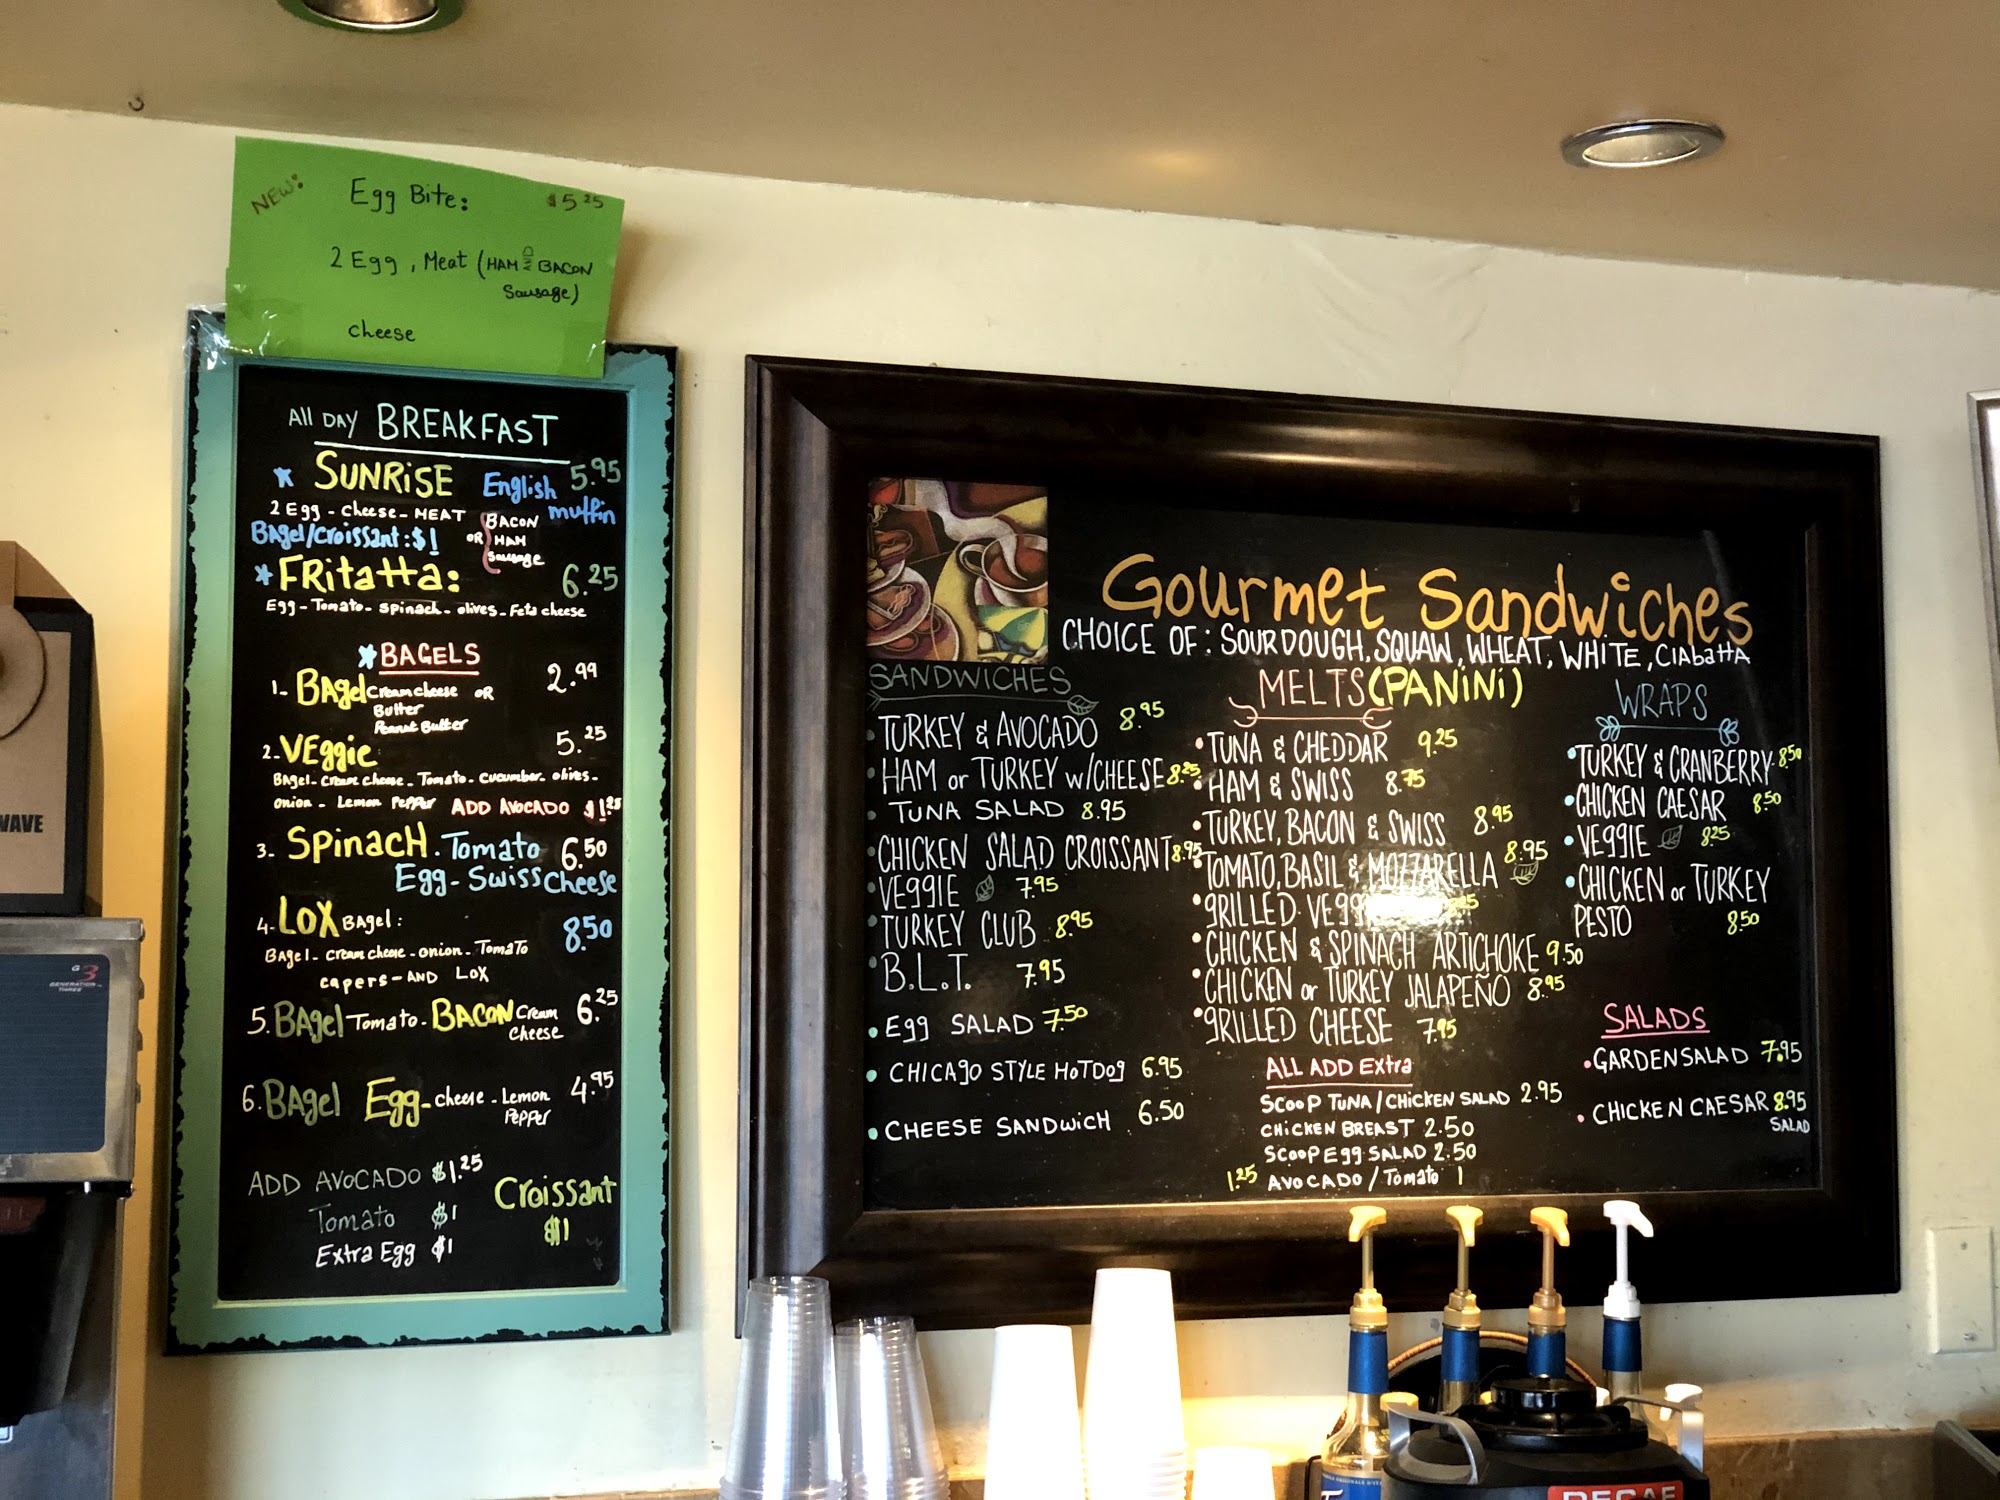 NEW: Egg Bite: $5.25
2 Egg, Meat (HAM AND BACON
Sausage)
cheese
All DAY BREAKFAST
* SUNRISE English muffin 5.95
2 Egg - cheese - MEAT OR BACON
HAM
Sausage
Bagel/Croissant: $1
* FRitatta: 6.25
Egg - Tomato - spinach - olives - Feta cheese
* BAGELS
1- BAgel cream cheese OR 2.99
Butter
Peanut Butter
2- VEggie: 5.25
BAgel - cream cheese - Tomato - cucumber - olives -
onion - Lemon PePPer ADD AVOCADO $1.25
3- SPinacH . Tomato 6.50
Egg - Swiss Cheese
4- LOX BAgel: 8.50
BAgel - cream cheese - onion - Tomato
capers - AND LOX
5. BAgel Tomato - BACON Cream cheese 6.25
6. BAgel Egg - cheese - Lemon Pepper 4.95
ADD AVOCADO $1.25
Tomato $1
Extra Egg $1
Croissant
$1
Gourmet Sandwiches
CHOICE OF: SOURDOUGH, SQUAW, WHEAT, WHITE, CIabatta
SANDWICHES
TURKEY & AVOCADO 8.95
HAM or TURKEY w/CHEESE 8.25
TUNA SALAD 8.95
CHICKEN SALAD CROISSANT 8.95
VEGGIE 7.95
TURKEY CLUB 8.95
B.L.T. 7.95
Egg SALAD 7.50
CHICAgO STYLE HOTDOg 6.95
CHEESE SANDWiCH 6.50
MELTS (PANiNi)
TUNA & CHEDDAR 9.25
HAM & SWISS 8.75
TURKEY, BACON & SWISS 8.95
TOMATO, BASIL & MOZZARELLA 8.95
gRILLED
CHICKEN & SPINACH ARTICHOKE 9.50
CHICKEN or TURKEY JALAPEÑO 8.95
gRILLED CHEESE 7.95
ALL ADD Extra
SCOOP TUNA / CHICKEN SALAD 2.95
CHICKEN BREAST 2.50
SCOOP Egg SALAD 2.50
1.25 AVOCADO / Tomato 1
WRAPS
TURKEY & CRANBERRY 8.50
CHICKEN CAESAR 8.50
VEGGIE 8.25
CHICKEN or TURKEY
PESTO 8.50
SALADS
GARDEN SALAD 7.95
CHICKEN CAESAR 8.95
SALAD
WAVE
G3
GENERATION THREE
DECAF